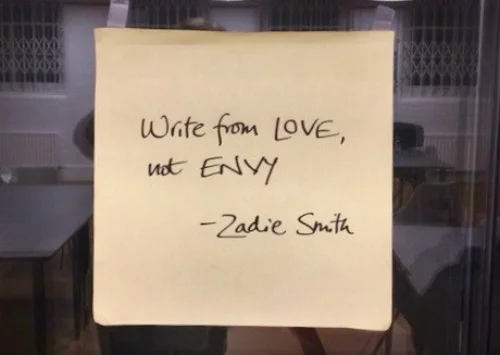 Write from LOVE,
not ENVY
-Zadie Smith